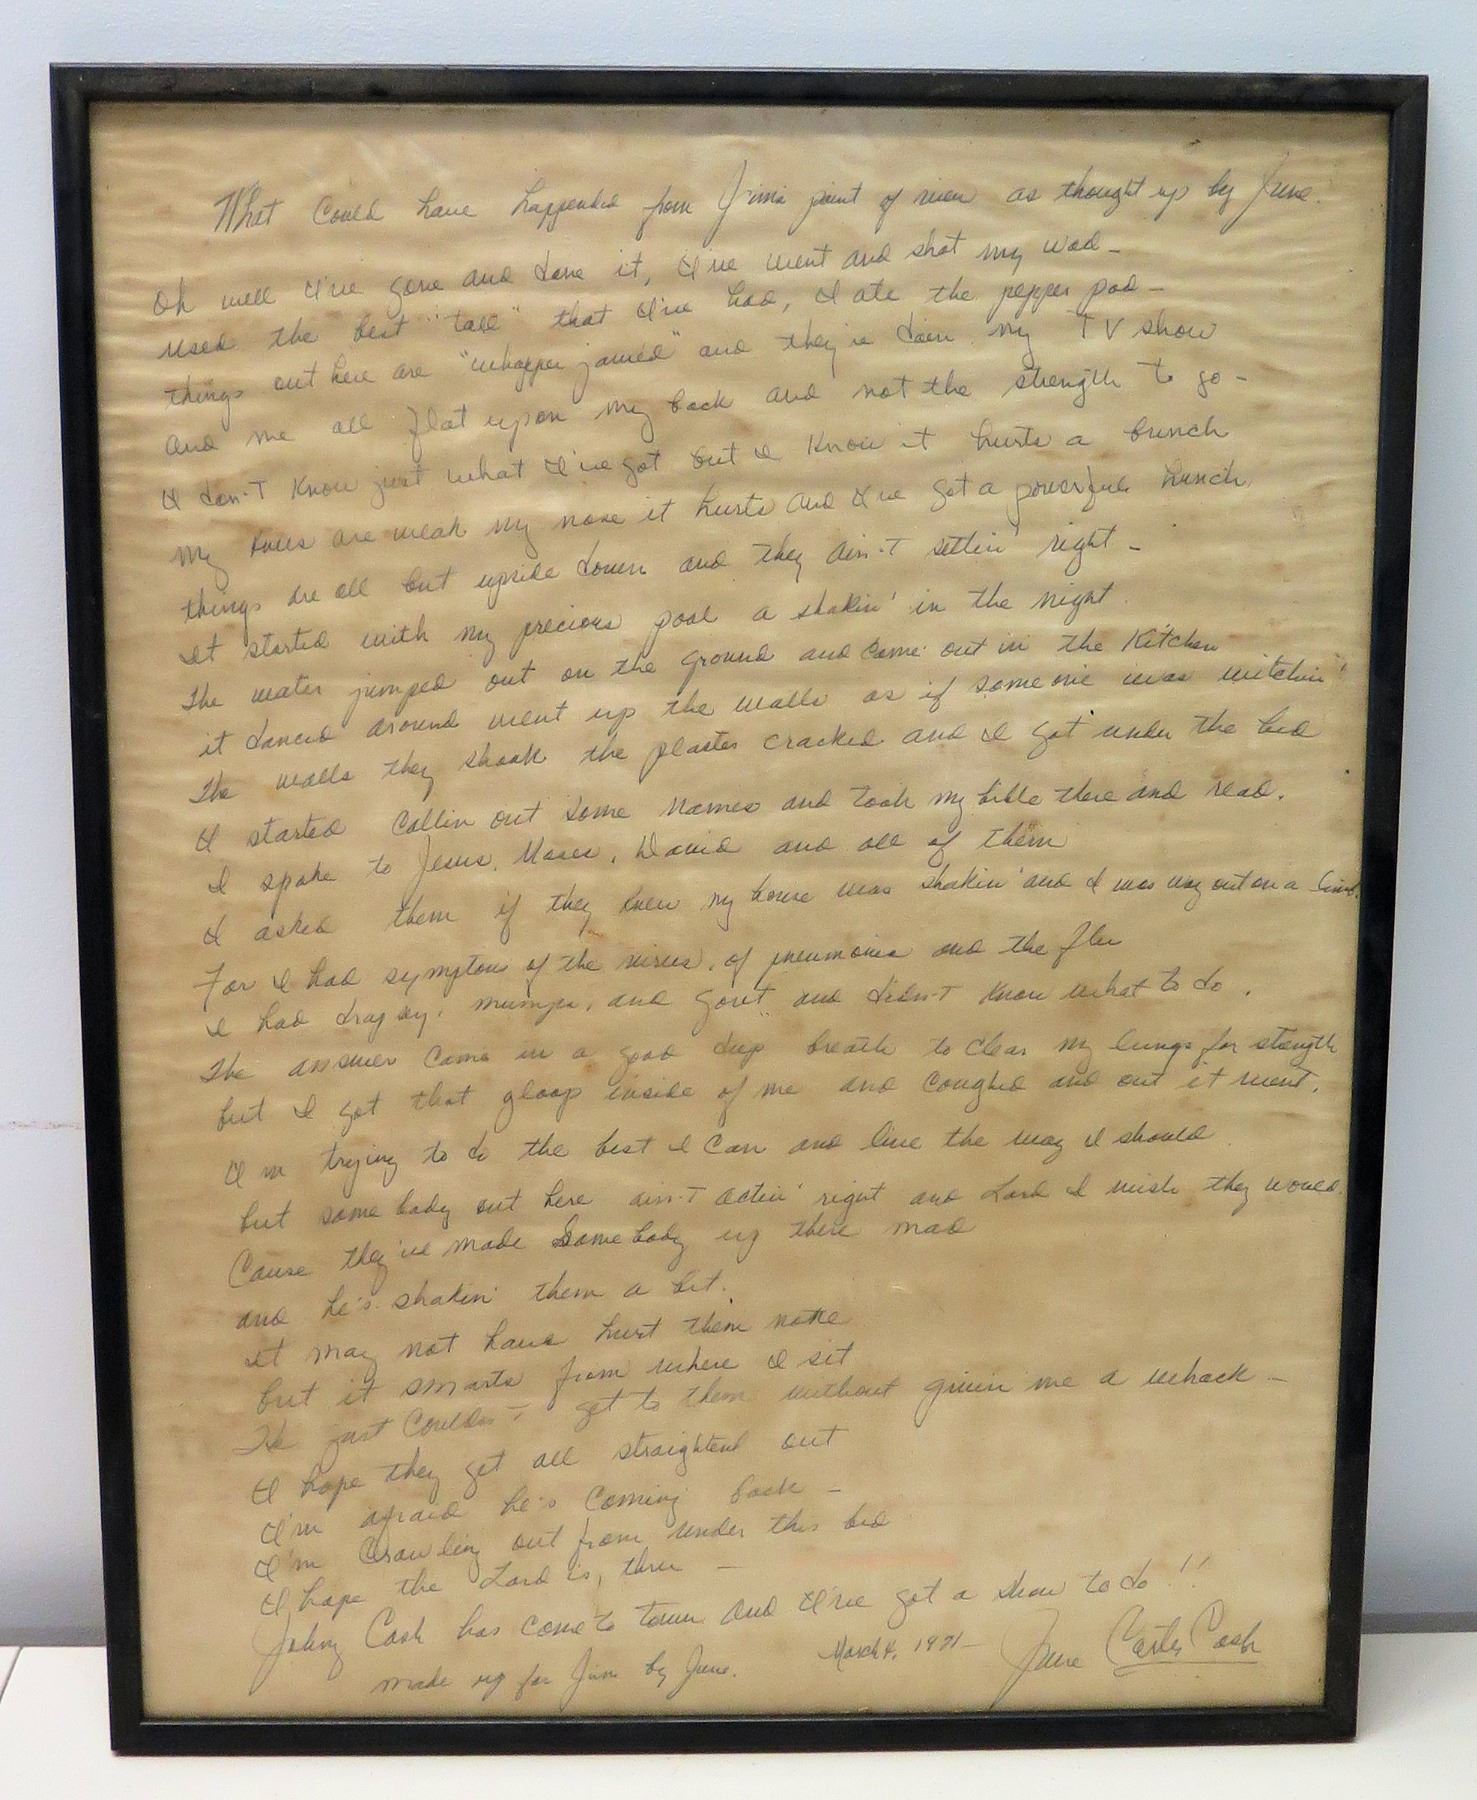 What Could have happended from Jim's point of view as thought up by June.
Oh well I've gone and done it, I've went and shot my wad -
used the best "tale" that I've had, I ate the pepper pod -
things out here are "whopper jawed" and they're doin my TV show
and me all flat upon my back and not the strength to go -
I don't know just what I've got but I know it hurts a bunch
my are weak my nose it hurts and I've got a powerful hunch
things are all but upside down and they ain't settin' right -
It started with my precious pool a shakin' in the night.
The water jumped out on the ground and come out in the Kitchen
it danced around went up the walls as if someone was witchin'
The walls they shook the plaster cracked and I got under the bed
I started callin out some names and took my bible there and read.
I spoke to Jesus, Moses, David and all of them
I asked them if they knew my house was shakin' and I was way out on a limb.
For I had symptons of the virus, of pneumonia and the flu
I had dropsy, mumps, and gout and didn't know what to do.
The answer come in a good deep breath to clear my lungs for strength
but I got that gloop inside of me and coughed and out it went.
I'm trying to do the best I can and live the way I should
but somebody out here ain't actin' right and Lord I wish they would
Cause they've made Somebody up there mad
and he's shakin' them a bit.
It may not have hurt them none
but it smarts from where I sit
He just couldn't get to them without givin me a whack -
I hope they get all straightend out
I'm afraid he's coming back -
I'm crawling out from under this bed
I hope the Lord is, thru -
Johny Cash has come to town and I've got a show to do!!
made up for Jim by June. March 4, 1971 - June Carter Cash